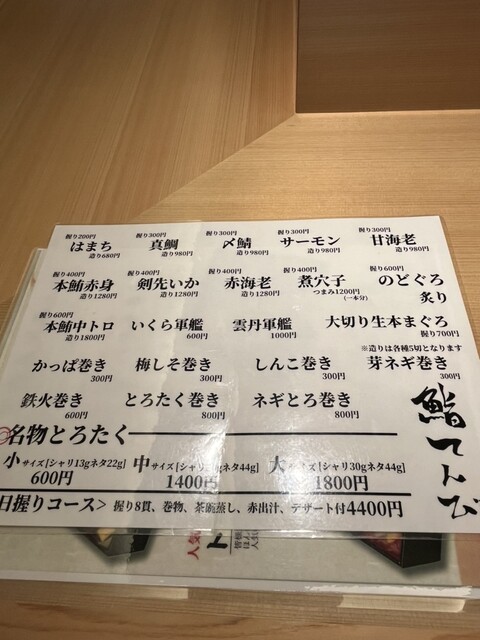 握り200円 握り300円 握り300円 握り300円 握り300円
はまち 真鯛 〆鯖 サーモン 甘海老
造り680円 造り980円 造り980円 造り980円 造り980円
握り400円 握り400円 握り400円 握り400円 握り600円
本鮪赤身 剣先いか 赤海老 煮穴子 のどぐろ
造り1280円 造り1280円 造り1280円 つまみ1200円 炙り
(一本分)
握り600円
本鮪中トロ いくら軍艦 雲丹軍艦 大切り生本まぐろ
造り1800円 600円 1000円 握り700円
※造りは各種5切となります
かっぱ巻き 梅しそ巻き しんこ巻き 芽ネギ巻き
300円 300円 300円 300円
鉄火巻き とろたく巻き ネギとろ巻き
600円 800円 800円
鮨てんび
名物とろたく
小サイズ[シャリ13gネタ22g] 中サイズ[シャリ ネタ44g] 大サイズ[シャリ30gネタ44g]
600円 1400円 1800円
日握りコース> 握り8貫、巻物、茶碗蒸し、赤出汁、デザート付4400円
人気